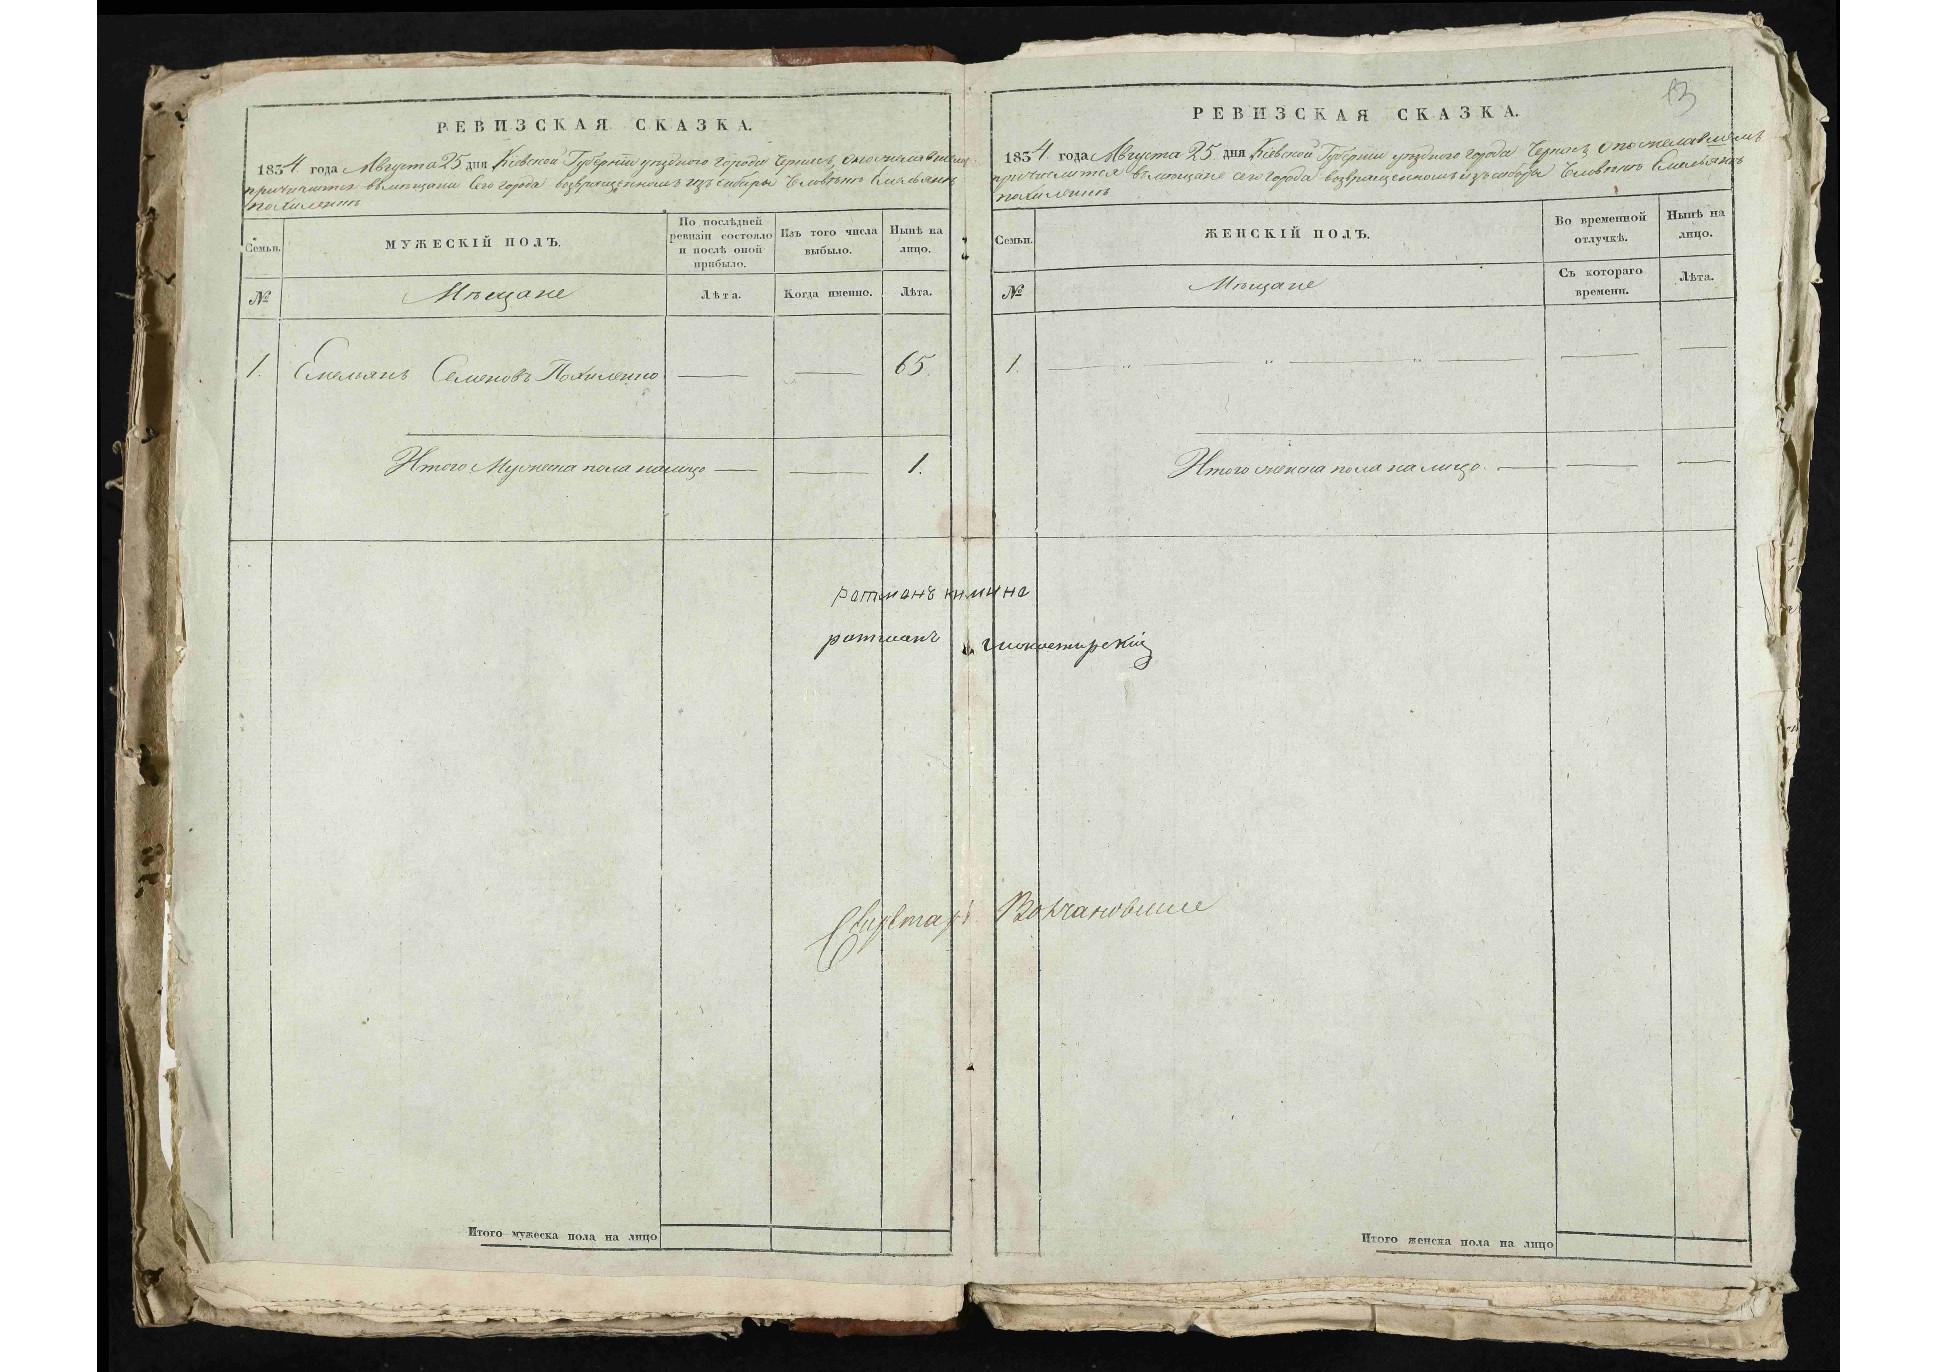 РЕВИЗСКАЯ СКАЗКА.
1834 года Августа 25 дня Кіевской Губерніи уѣзднаго города Черкасъ, о пожелавшемъ
причислится въ мѣщани сего города возвращенномъ изъ сибиры Человѣкѣ Емельянѣ
Похиленкѣ
Семьи.
МУЖЕСКІЙ ПОЛЪ.
По послѣдней
ревизіи состояло
и послѣ оной
прибыло.
Изъ того числа
выбыло.
Нынѣ на
лицо.
№
Мѣщане
Лѣта.
Когда именно.
Лѣта.
1. Емельянъ Семеновъ Похиленко — — 65.
Итого Мужеска пола налицо — — 1.
Итого мужеска пола на лицо
13
РЕВИЗСКАЯ СКАЗКА.
1834 года Августа 25 дня Кіевской Губерніи уѣзднаго города Черкасъ о пожелавшемъ
причислится въ мѣщане сего города возвращенномъ изъ сибыры Человѣкѣ Емельянѣ
Похиленкѣ
Семьи.
ЖЕНСКІЙ ПОЛЪ.
Во временной
отлучкѣ.
Нынѣ на
лицо.
№
Мѣщане
Съ котораго
времени.
Лѣта.
1. — „ — „ — „ — — —
Итого женска пола на лицо. — — —
ратманъ
ратманъ
Секретарь
Итого женска пола на лицо